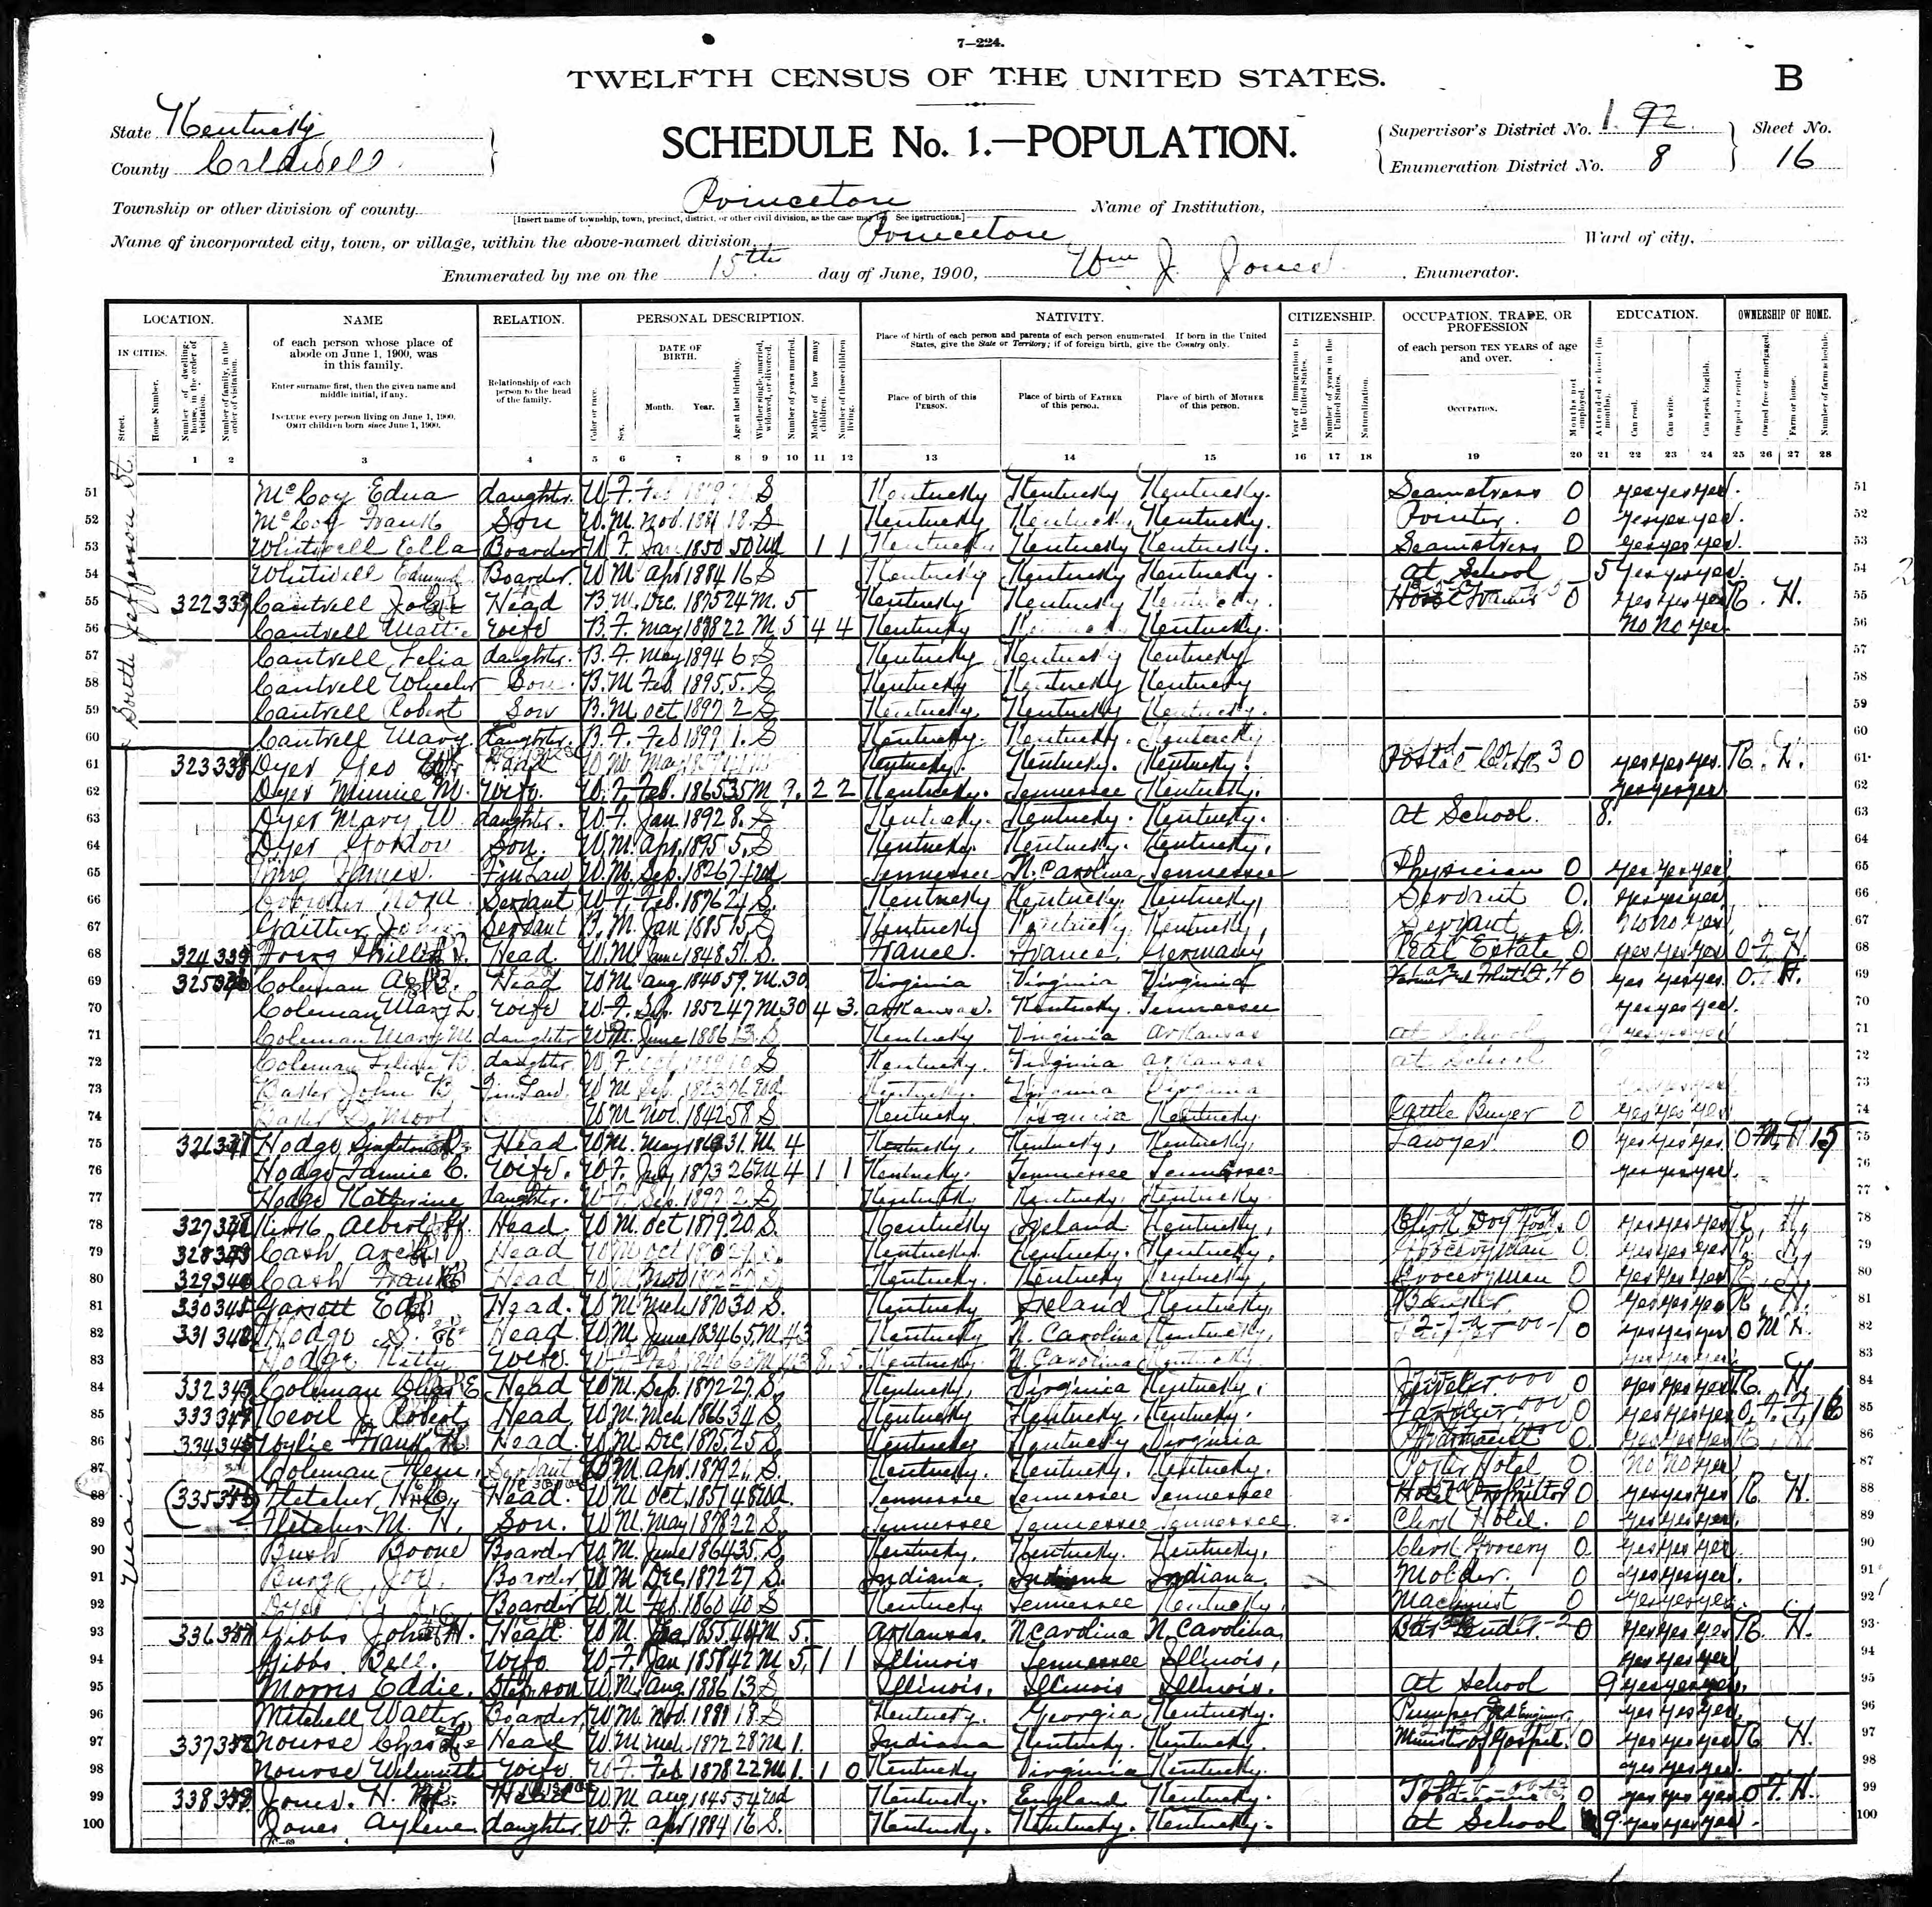 7—224.
TWELFTH CENSUS OF THE UNITED STATES.
B
State Kentucky
County Caldwell
SCHEDULE No. 1.—POPULATION.
Supervisor's District No. 1. 92
Enumeration District No. 8
Sheet No. 16
Township or other division of county Princeton
[Insert name of township, town, precinct, district, or other civil division, as the case may be. See instructions.]
Name of Institution,
Name of incorporated city, town, or village, within the above-named division, Princeton
Ward of city,
Enumerated by me on the 15th day of June, 1900, Wm J. Jones, Enumerator.
LOCATION. NAME RELATION. PERSONAL DESCRIPTION. NATIVITY. CITIZENSHIP. OCCUPATION, TRADE, OR PROFESSION EDUCATION. OWNERSHIP OF HOME.
IN CITIES. Street. House Number. Number of dwelling-house, in the order of visitation. Number of family, in the order of visitation.
of each person whose place of abode on June 1, 1900, was in this family.
Enter surname first, then the given name and middle initial, if any.
INCLUDE every person living on June 1, 1900. OMIT children born since June 1, 1900.
Relationship of each person to the head of the family.
Color or race. Sex. DATE OF BIRTH. Month. Year. Age at last birthday. Whether single, married, widowed, or divorced. Number of years married. Mother of how many children. Number of these children living.
Place of birth of each person and parents of each person enumerated. If born in the United States, give the State or Territory; if of foreign birth, give the Country only.
Place of birth of this PERSON. Place of birth of FATHER of this person. Place of birth of MOTHER of this person.
Year of immigration to the United States. Number of years in the United States. Naturalization.
of each person TEN YEARS of age and over.
OCCUPATION. Months not employed.
Attended school (in months). Can read. Can write. Can speak English.
Owned or rented. Owned free or mortgaged. Farm or house. Number of farm schedule.
1 2 3 4 5 6 7 8 9 10 11 12 13 14 15 16 17 18 19 20 21 22 23 24 25 26 27 28
South Jefferson St.
51 McCoy Edna daughter. W. F. Feb S Kentucky Kentucky Kentucky. Seamstress 0 yes yes yes. 51
52 McCoy Frank Son W. M. Nov. 1881 18. S Kentucky Kentucky. Kentucky. 0 yes yes yes. 52
53 Whitwell Ella Boarder W F. Jan 1850 50 Wd 1 1 Kentucky Kentucky Kentucky. Seamstress 0 yes yes yes. 53
54 Whitwell Boarder. W M Apr 1884 16 S Kentucky Kentucky Kentucky. At School 5 yes yes yes. 54
55 322 Cantrell Head B. M. Dec. 1875 24 M. 5 Kentucky Kentucky 0 yes yes yes R. H. 55
56 Cantrell Mattie wife B. F. May 22 M 5 4 4 Kentucky Kentucky. No No yes 56
57 Cantrell Lelia daughter. B. F. May 1894 6. S Kentucky Kentucky Kentucky 57
58 Cantrell Wheeler Son. B. M Feb. 1895 5. S Kentucky Kentucky Kentucky 58
59 Cantrell Robert Son B. M Oct 1897 2 S Kentucky. Kentucky Kentucky. 59
60 Cantrell Mary daughter. B. F. Feb 1899 1. S Kentucky. Kentucky. Kentucky 60
61 323 338 Dyer Geo Head W M. May Kentucky. Kentucky. Kentucky. Postal Clerk 0 yes yes yes. R. H. 61
62 Dyer Minnie M. wife. W. F. Feb. 1865 35 M 9. 2 2 Kentucky. Tennessee Kentucky. yes yes yes 62
63 Dyer Mary W. daughter. W. F. Jan. 1892 8. S Kentucky. Kentucky. Kentucky. At School. 8. 63
64 Dyer Gordon Son. W. M. Apr. 1895 5. S Kentucky. Kentucky. Kentucky. 64
65 James. F in Law W. M. Sep. 1826 Wd Tennessee N. Carolina Tennessee Physician 0 yes yes yes 65
66 Nora Servant W. F. Feb. 1876 24 S. Kentucky Kentucky. Kentucky, Servant 0. yes yes yes 66
67 Gaither Servant B. M. Jan 1885 15 S Kentucky Kentucky. Kentucky, Servant 0. No No yes. 67
68 324 339 Head. W. M. June 1848 51. S. France. France. Germany Real Estate 0 yes yes yes O F. H 68
69 325 Coleman Head W M Aug 1840 59. M. 30 Virginia Virginia Virginia 0 yes yes yes O. H. 69
70 Coleman Mary L. wife W. F. Sep. 1852 47 M 30 4 3. Arkansas. Kentucky. Tennessee yes yes yes. 70
71 Coleman Mary M. daughter June 1886 13. S Kentucky Virginia Arkansas At School 9 yes yes yes 71
72 Coleman B. daughter W. F. 10 S Kentucky. Virginia Arkansas At School 72
73 Baker John B F in Law W M Sep. 1823 76 Wd Kentucky. Virginia Virginia 73
74 Baker Moot W M Nov. 1842 58 S Kentucky. Virginia Kentucky Cattle Buyer 0 yes yes yes 74
75 326 Hodge Head W M. May 31. M. 4 Kentucky, Kentucky, Kentucky, Lawyer 0 yes yes yes. O M. H 15 75
76 Hodge Fannie C. wife. W F. 1873 26 M 4 1 1 Kentucky. Tennessee Tennessee yes yes yes. 76
77 Hodge Katherine daughter. W F Sep. 1897 2. S Kentucky Kentucky. Kentucky. 77
78 327 Albert Head. W M. Oct 1879 20. S. Kentucky Ireland Kentucky, Clerk 0 yes yes yes R. H, 78
79 328 Cash Arch Head W M Oct Kentucky. Kentucky. Kentucky. Groceryman 0. yes yes yes R. H, 79
80 329 Cash Frank Head Nov Kentucky. Kentucky Kentucky, Groceryman 0 yes yes yes R. H, 80
81 330 Garrott Ed Head. W M. Mch 1870 30 S. Kentucky Ireland Kentucky. 0 yes yes yes R. H. 81
82 331 Hodge S. Head W M. June 1834 65. M. 43 Kentucky N. Carolina Kentucky, 0 yes yes yes O M H. 82
83 Hodge Kitty wife. W F. Feb. 1840 60 M 43 8. 5. Kentucky. N. Carolina Kentucky. yes yes yes 83
84 332 Coleman E Head W M. Sep. 1872 27. S, Kentucky, Virginia Kentucky. Jeweler 0 yes yes yes R. H. 84
85 333 Kevil J. Robert Head. W M. Mch 1866 34 S Kentucky Kentucky, Kentucky. Farmer 0 yes yes yes O. F. F. 16 85
86 334 Wylie Frank Head. W M Dec 1875 25 S Kentucky Kentucky Virginia Pharmacist 0 yes yes yes R. H. 86
87 Coleman Hem. Servant M Apr. 1879 21. S. Kentucky. Kentucky. Kentucky. Porter Hotel 0 No No yes 87
Maine
88 335 Fletcher Head. W M Oct. 1851 48 Wd. Tennessee Tennessee Tennessee Hotel Proprietor 0 yes yes yes R H. 88
89 Fletcher M. H. Son. W M. May 1878 22 S Tennessee Tennessee Tennessee. Clerk Hotel. 0 yes yes yes. 89
90 Bush Boone Boarder W M. June 1864 35. S Kentucky. Kentucky. Kentucky. Clerk Grocery 0. yes yes yes 90
91 Joe Boarder W M Dec. 1872 27 S. Indiana. Indiana Indiana. Molder. 0 yes yes yes. 91
92 Dyer Boarder W M Feb. 1860 40 S Kentucky Tennessee Kentucky. Machinist 0 yes yes yes. 92
93 336 Gibbs John H. Head. W M. 1855 M 5. Arkansas. N Carolina N. Carolina 0 yes yes yes R. H. 93
94 Gibbs Bell. Wife. W. F. Jan 1858 42 M 5, 1 1 Illinois Tennessee Illinois, yes yes yes 94
95 Morris Eddie. Stepson W. M. Aug 1886 13 S Illinois. Illinois Illinois. At School 9 yes yes yes. 95
96 Mitchell Walter Boarder W. M. Nov. 18 S Kentucky. Georgia Kentucky. Pumper yes yes yes, 96
97 337 Nourse Head W. M. Mch 1872 28 M 1. Indiana Kentucky. Kentucky. Minister of Gospel. 0 yes yes yes R H. 97
98 Nourse wife. W F. Feb 1878 22 M 1. 1 0 Kentucky Virginia Kentucky. yes yes yes. 98
99 338 Jones. H. Head W. M Aug 1845 54 Wd Kentucky. England Kentucky. 0 yes yes yes O F. H. 99
100 Jones Aylene daughter. W F. Apr 1884 16 S. Kentucky. Kentucky. Kentucky. At School 9 yes yes yes. 100